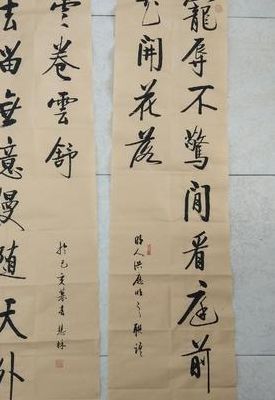 寵辱不驚閒看庭前
花開花落
明人洪應明之聯語
去留無意漫随天外
雲卷雲舒
於己亥暮春慧林